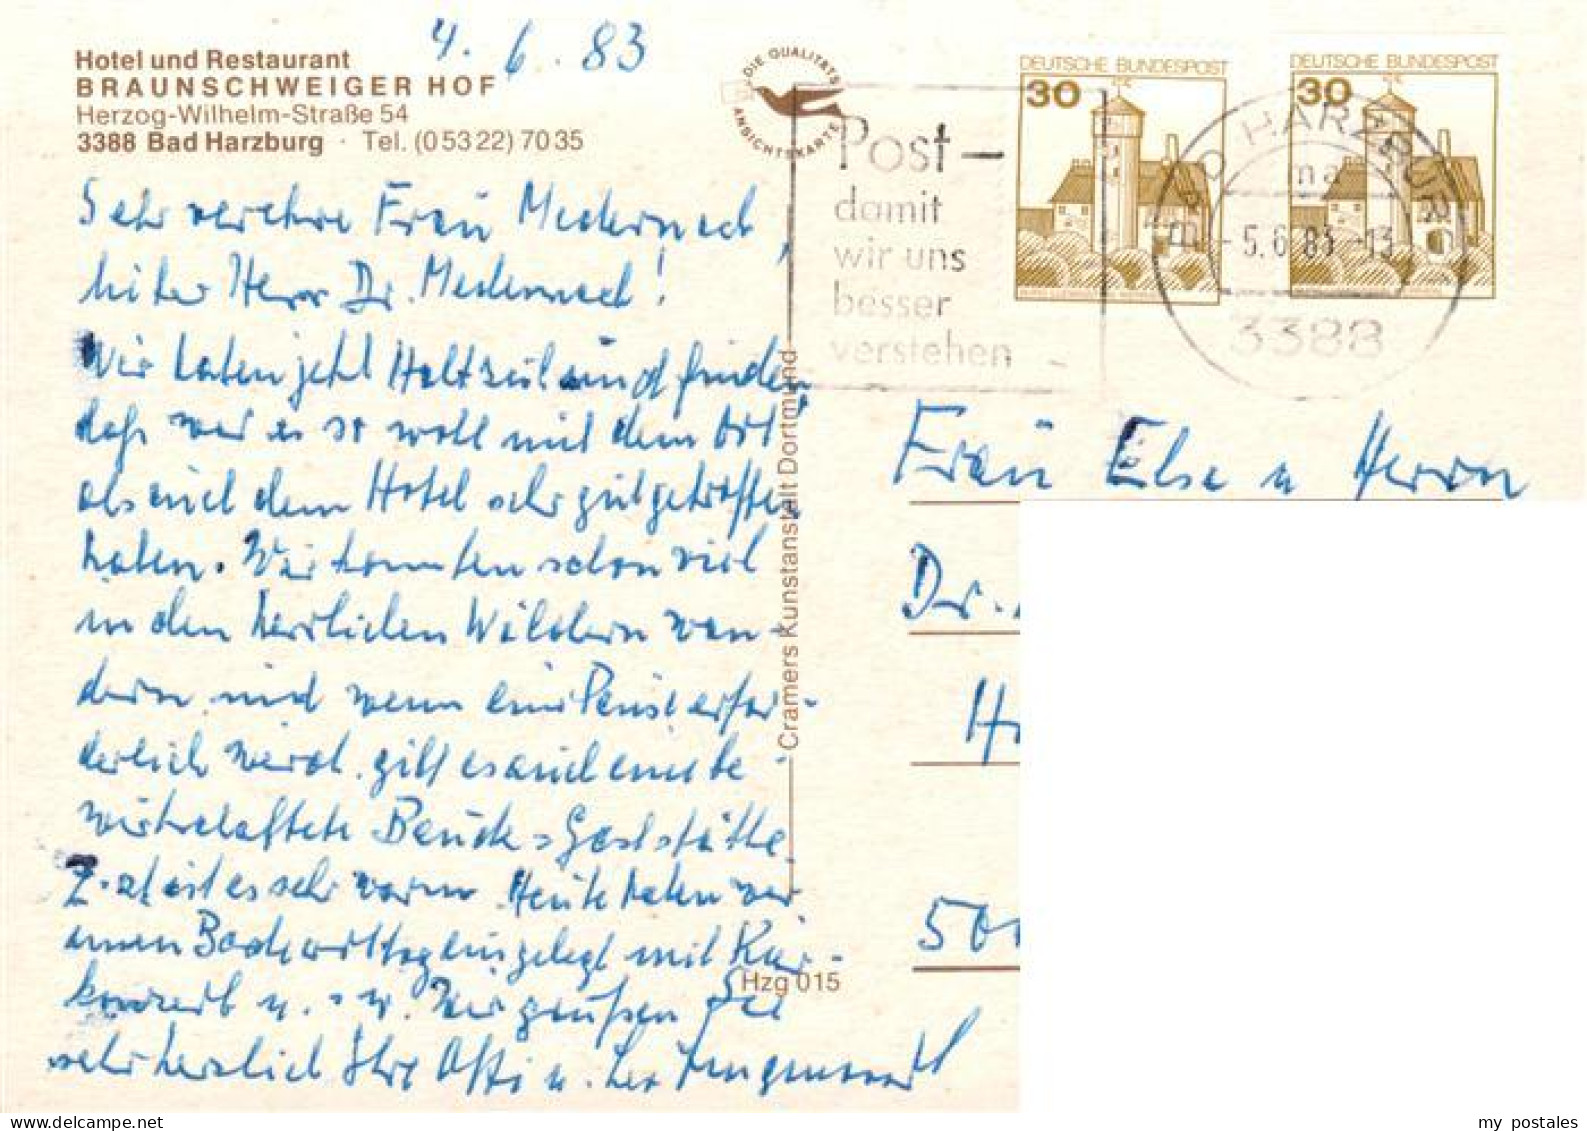 4. 6. 83
Hotel und Restaurant
BRAUNSCHWEIGER HOF
Herzog-Wilhelm-Straße 54
3388 Bad Harzburg · Tel. (05322) 7035
Sehr verehrte Frau Medernach,
lieber Herr Dr. Medernach!
Wir haben jetzt Halbzeit und finden
daß wir es so wohl mit dem Ort
als auch dem Hotel sehr gut getroffen
haben. Wir konnten schon viel
in den herrlichen Wäldern wan-
dern und wenn eine Pause erfor-
derlich wird, gibt es auch eine be-
wirtschaftete Gaststätte.
Z.Zt ist es sehr warm. Heute haben wir
einen Badevormittag eingelegt mit Kur-
konzert u.s.w. Wir grüßen Sie
sehr herzlich Ihre u.
DIE QUALITÄTS
ANSICHTSKARTE
Cramers Kunstanstalt Dortmund
Hzg 015
Post-
damit
wir uns
besser
verstehen
DEUTSCHE BUNDESPOST
30
DEUTSCHE BUNDESPOST
30
BAD HARZBURG
na
-5.6.83-13
3388
Frau Else u Herrn
Dr.
H
500
my postales